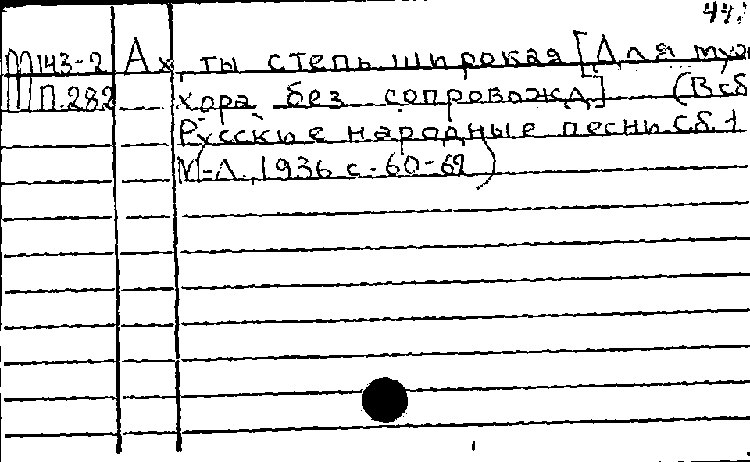 44
Ш143-2 Ах, ты степь широкая [Для муж
Ш П.282 хора без сопровожд.] (В сб.
Русские народные песни Сб. 1
М-Л., 1936 с. 60-69)